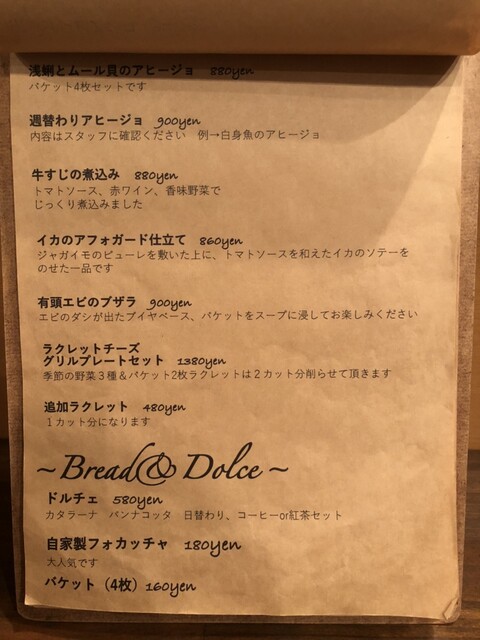 浅蜊とムール貝のアヒージョ 880yen
バケット4枚セットです
週替わりアヒージョ 900yen
内容はスタッフに確認ください 例→白身魚のアヒージョ
牛すじの煮込み 880yen
トマトソース、赤ワイン、香味野菜で
じっくり煮込みました
イカのアフォガード仕立て 860yen
ジャガイモのピューレを敷いた上に、トマトソースを和えたイカのソテーを
のせた一品です
有頭エビのブザラ 900yen
エビのダシが出たブイヤベース、バケットをスープに浸してお楽しみください
ラクレットチーズ
グリルプレートセット 1380yen
季節の野菜3種&バケット2枚ラクレットは2カット分削らせて頂きます
追加ラクレット 480yen
1カット分になります
~Bread & Dolce~
ドルチェ 580yen
カタラーナ パンナコッタ 日替わり、コーヒーor紅茶セット
自家製フォカッチャ 180yen
大人気です
バケット(4枚) 160yen